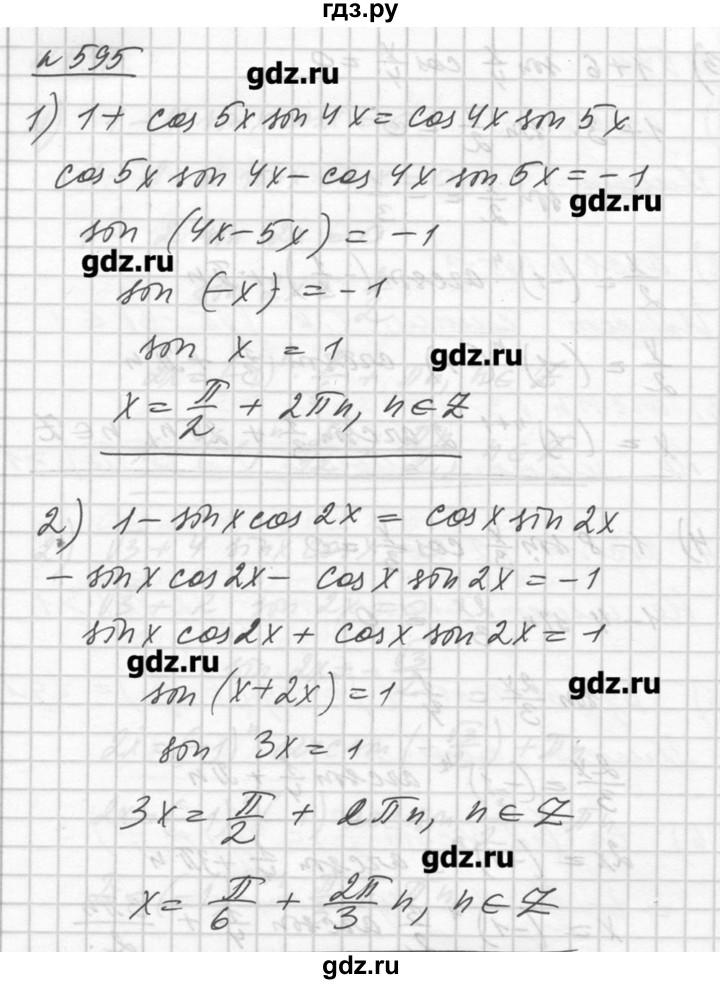 гдз.ру
№ 595
gdz.ru
1) 1 + cos 5x sin 4x = cos 4x sin 5x
cos 5x sin 4x − cos 4x sin 5x = −1
gdz.ru
sin (4x−5x) = −1
gdz.ru
sin (−x) = −1
sin x = 1
gdz.ru
x = π/2 + 2πn, n ∈ Z
2) 1 − sin x cos 2x = cos x sin 2x
− sin x cos 2x − cos x sin 2x = −1
sin x cos 2x + cos x sin 2x = 1
gdz.ru
sin (x+2x) = 1
gdz.ru
sin 3x = 1
3x = π/2 + 2πn, n ∈ Z
gdz.ru
x = π/6 + 2π/3 n, n ∈ Z
gdz.ru